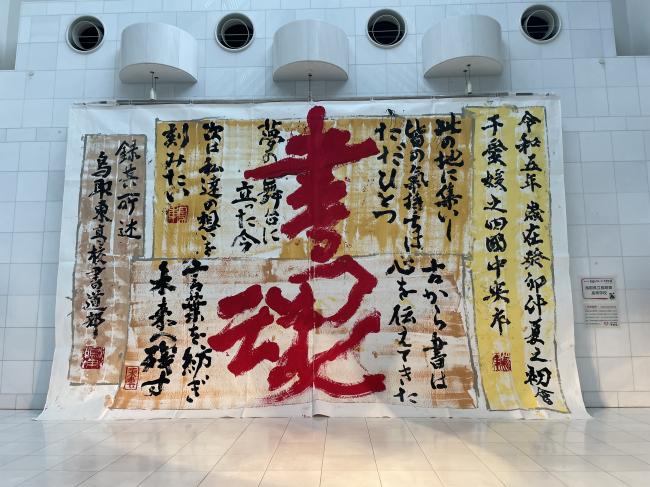 令和五年 歳在癸卯仲夏之初會
于愛媛之四國中央市
此の地に集いし
皆の氣持ちは
ただひとつ
書魂
夢の舞台に
立った今
次は私達の想いを
刻みたい
古から書は
心を伝えてきた
言葉を紡ぎ
未来へ残す
録其所述
鳥取東高校書道部